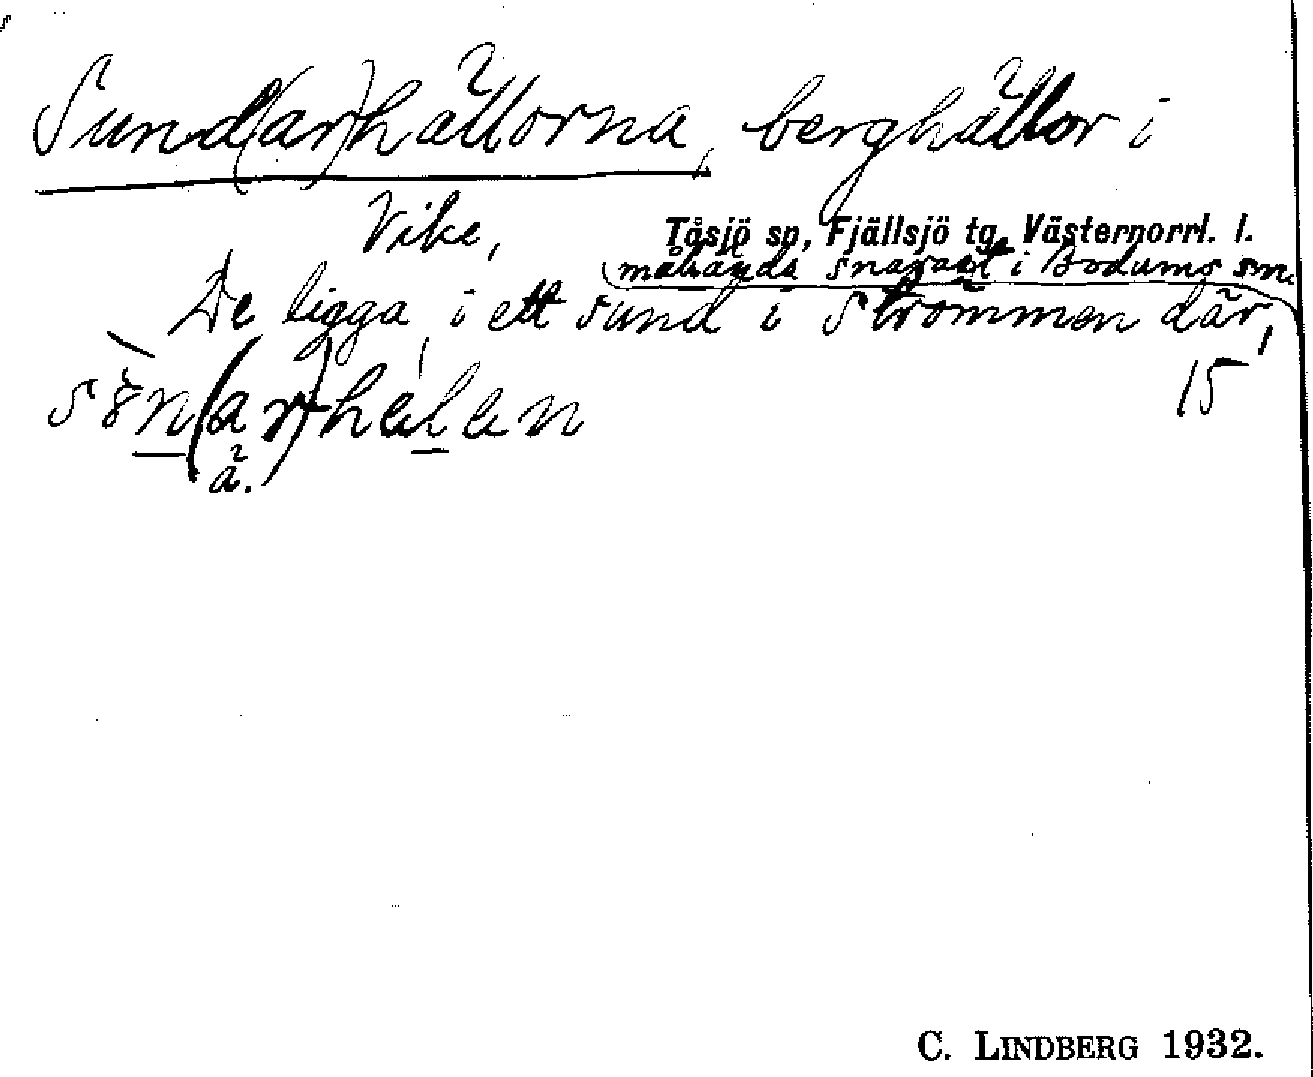 Sund(ar)hällorna, berghällor i
Vike,
Tåsjö sn, Fjällsjö tg, Västernorrl. l.
(måhända snarast i Bodums sn)
De ligga i ett sund i strömmen där,
15
C. LINDBERG 1932.